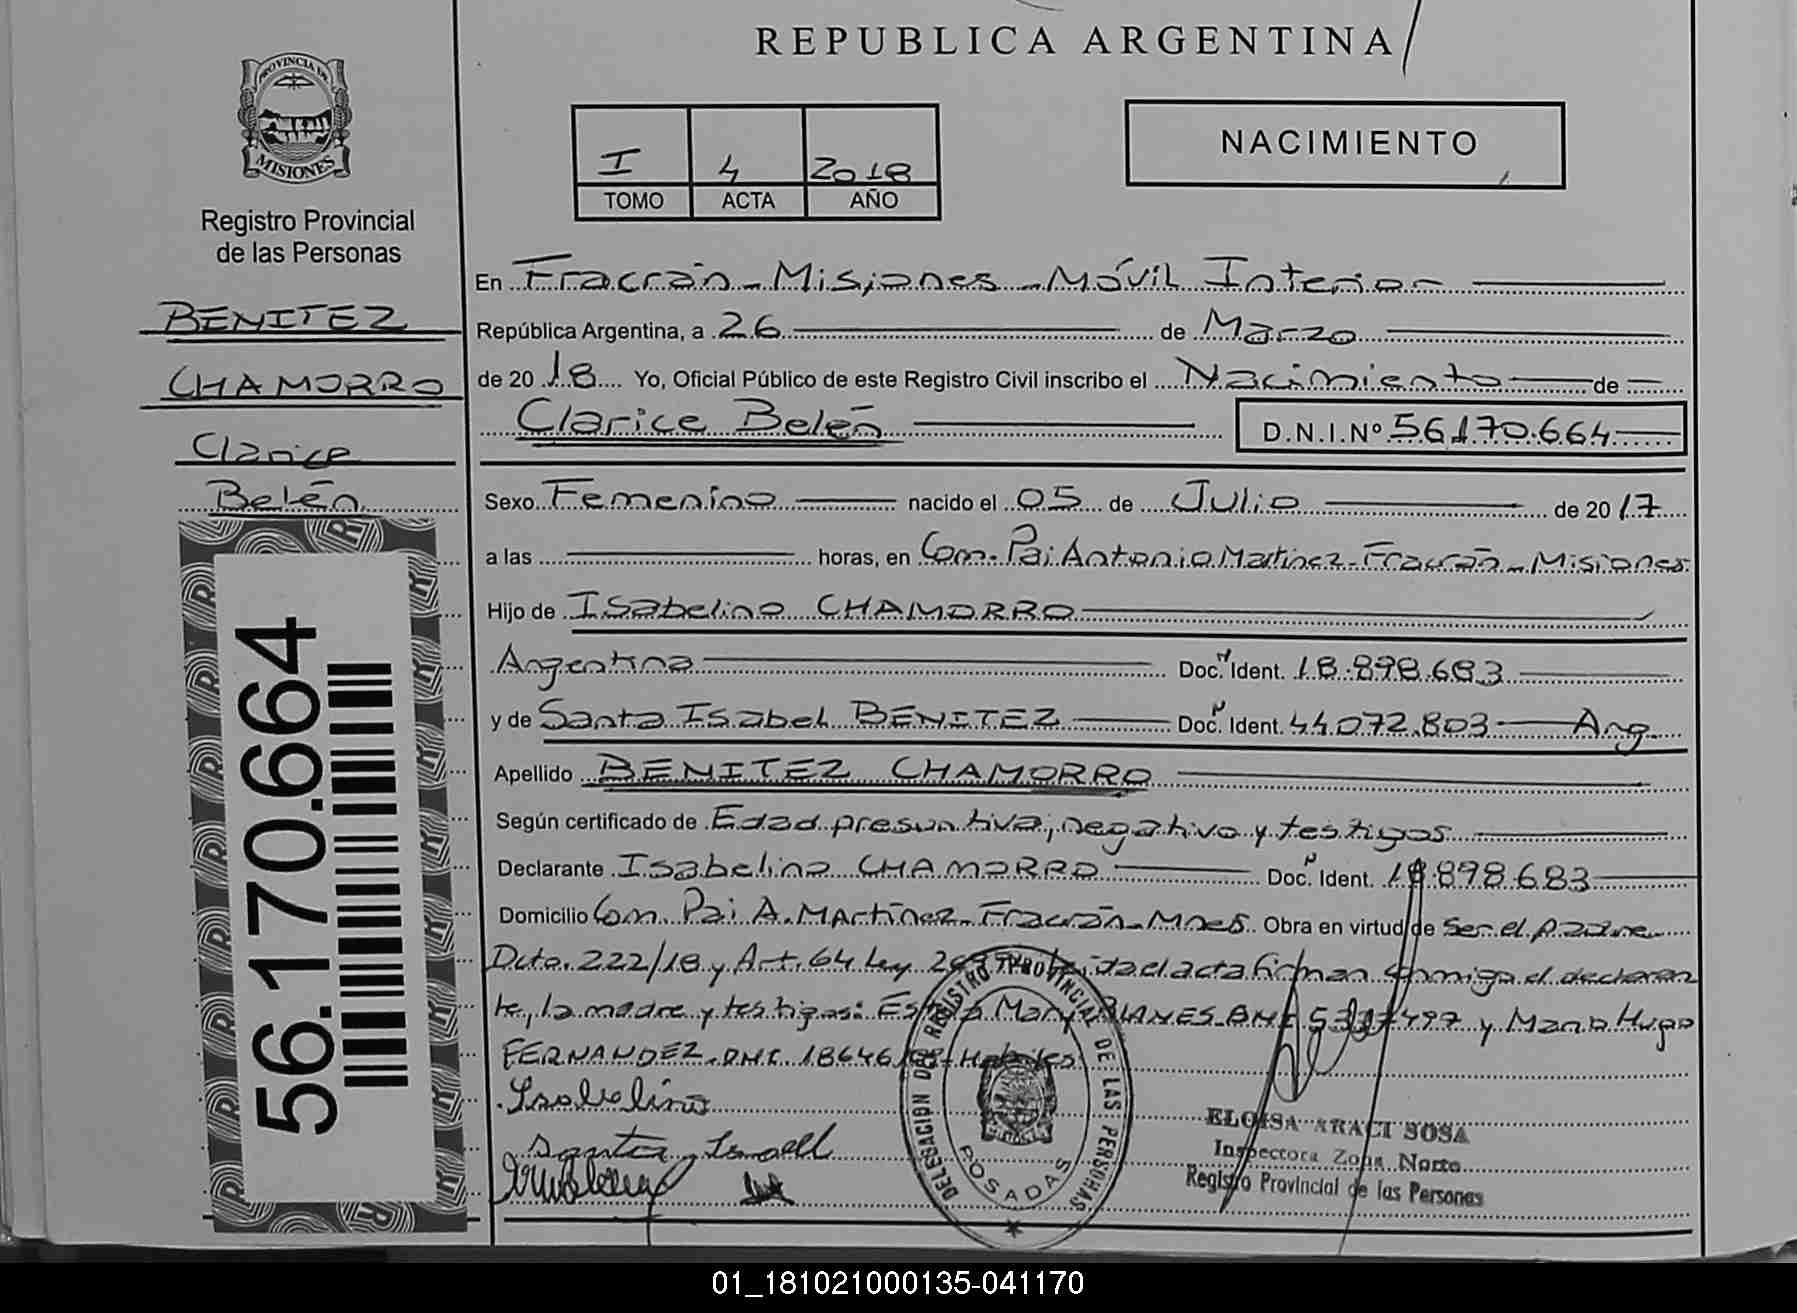 REPUBLICA ARGENTINA
PROVINCIA DE
MISIONES
Registro Provincial
de las Personas
I 4 2018
TOMO ACTA AÑO
NACIMIENTO
BENITEZ
CHAMORRO
Clarice
Belén
56.170.664
En Fracrán - Misiones - Móvil Interior
República Argentina, a 26 de Marzo
de 2018 Yo, Oficial Público de este Registro Civil inscribo el Nacimiento de
Clarice Belén D.N.I.Nº 56.170.664
Sexo Femenino nacido el 05 de Julio de 2017
a las horas, en Com. Pai Antonio Martinez - Fracrán - Misiones
Hijo de Isabelino CHAMORRO
Argentina Doc. Ident. 18.898.683
y de Santa Isabel BENITEZ Doc. Ident. 44.072.803 Arg.
Apellido BENITEZ CHAMORRO
Según certificado de Edad presuntiva, negativo y testigos
Declarante Isabelino CHAMORRO Doc. Ident. 18.898.683
Domicilio Com. Pai A. Martinez - Fracrán - Mnes. Obra en virtud de Ser el padre
Dcto. 222/18 y Art. 64 Ley acta firman conmigo el declaran
te, la madre y testigos: Mary y Mario Hugo
FERNANDEZ DNI 18646 Hábiles
Isabelino
Santa Isabel
DELEGACIÓN DEL REGISTRO PROVINCIAL DE LAS PERSONAS
POSADAS
ELOISA ARACI SOSA
Inspectora Zona Norte
Registro Provincial de las Personas
01_181021000135-041170